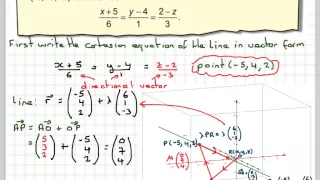 x+5/6 = y-4/1 = 2-z/3.
First write the cartesian equation of the line in vector form
x+5/6 = y-4/1 = z-2/-3 point (-5, 4, 2)
directional vector
Line: r = (-5 4 2) + λ (6 1 -3)
AP = AO + OP
(5 3 2) + (-5 4 2) = (0 7 4)
P(-5,4,2)